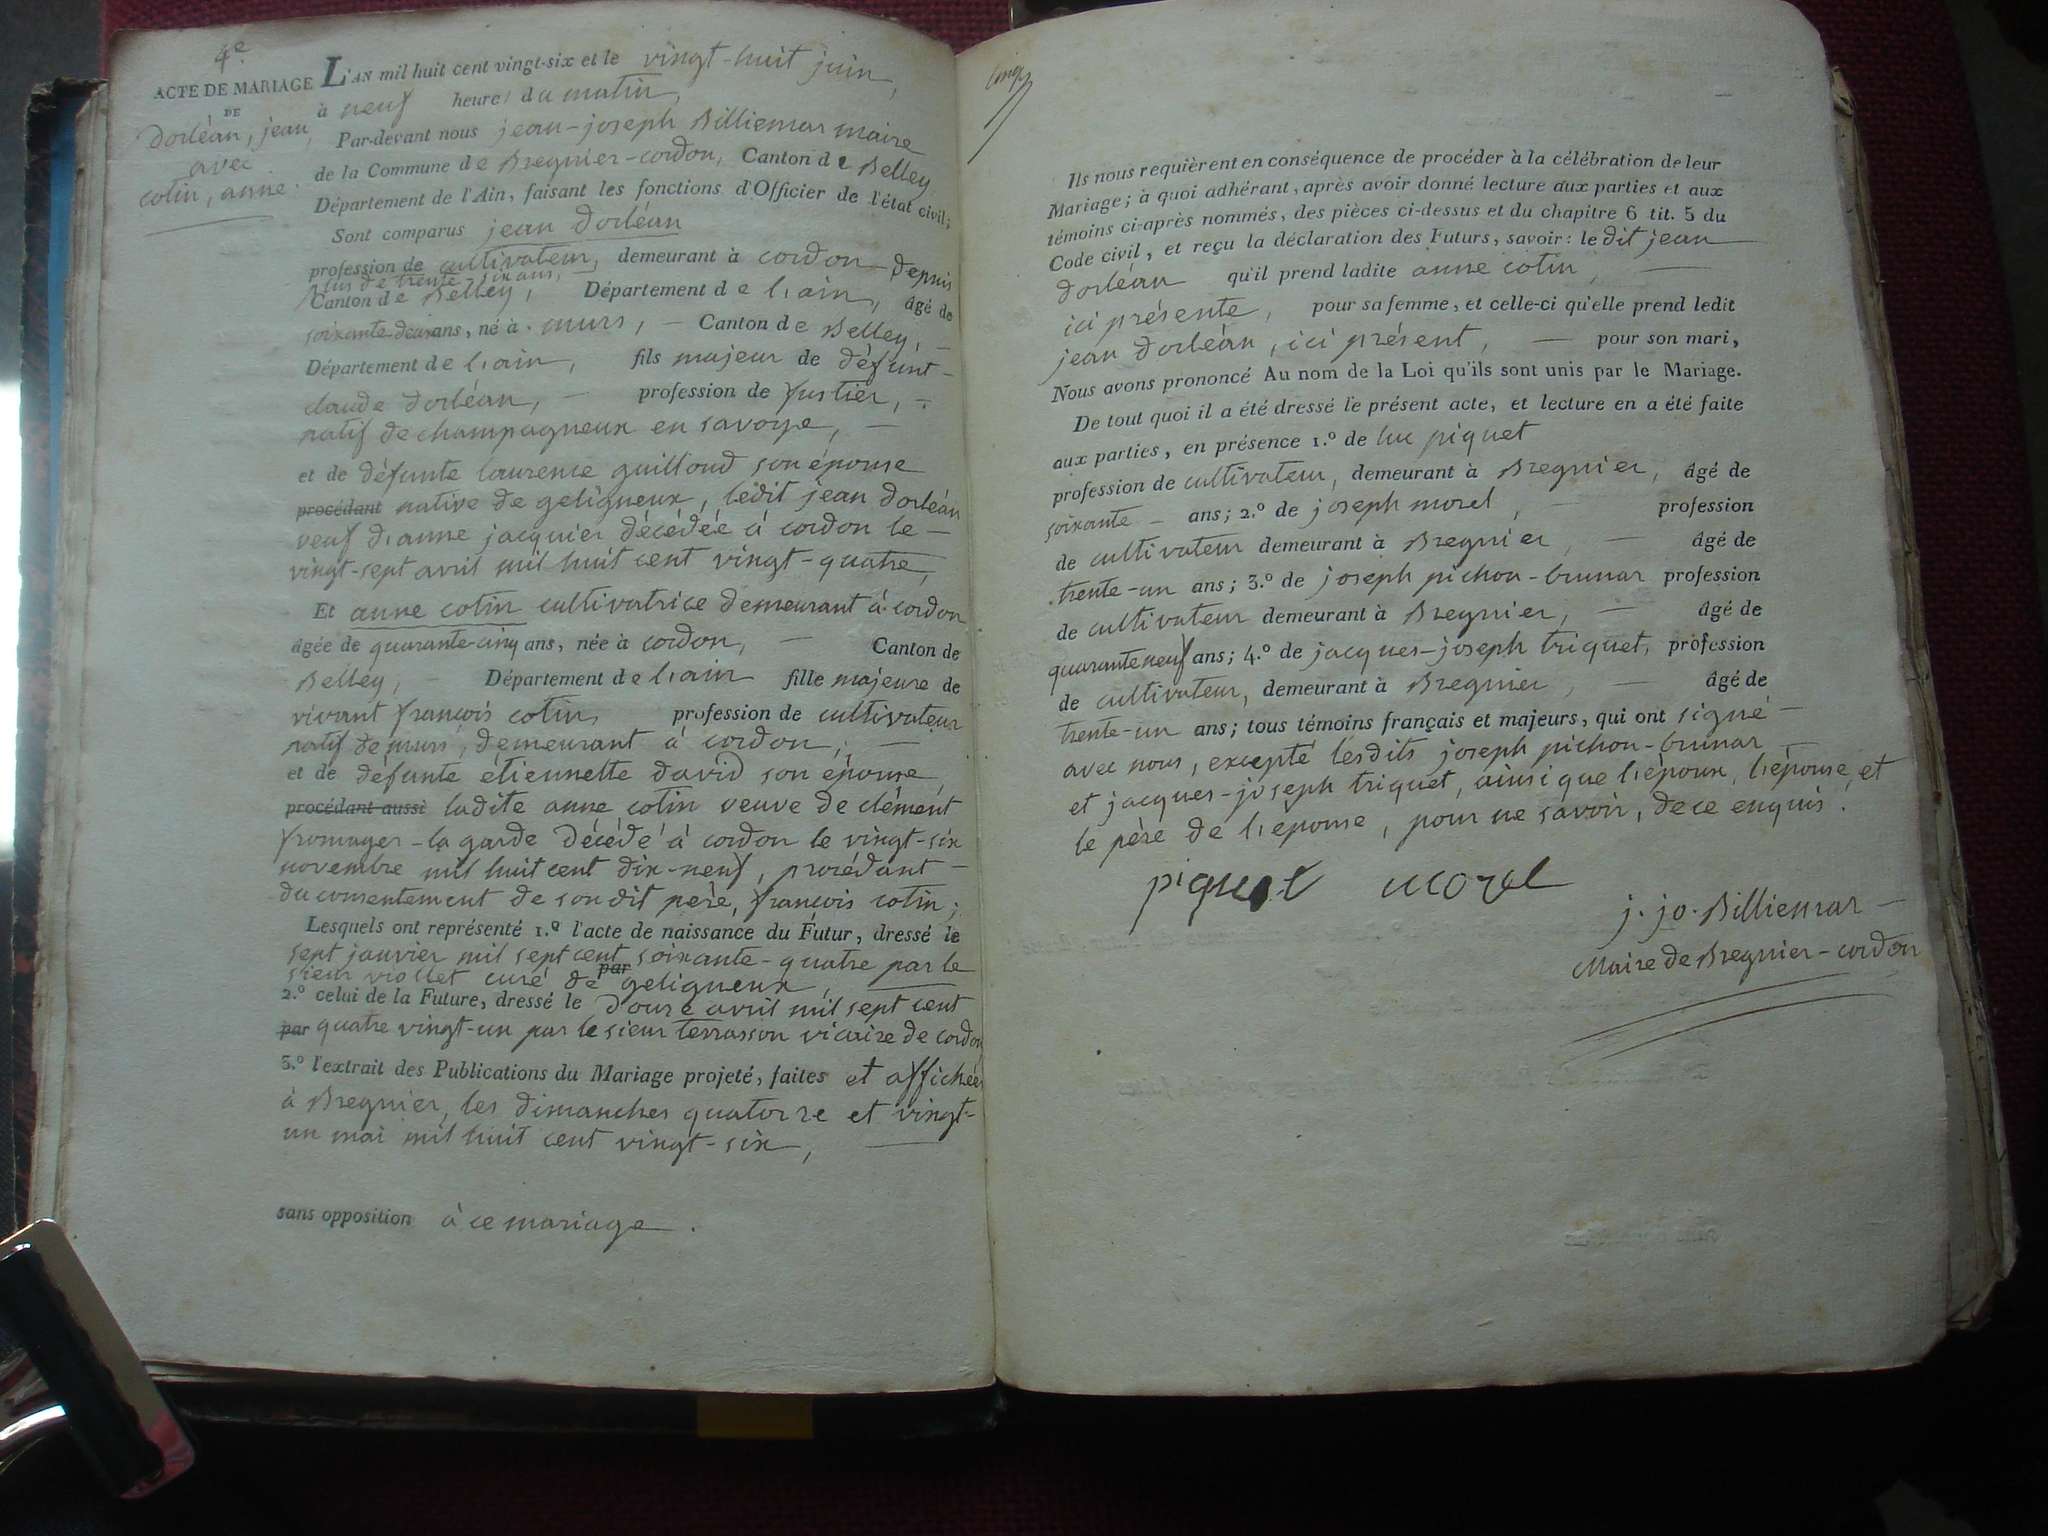 4e
ACTE DE MARIAGE
DE
dorléan, jean,
avec
cotin, anne.
L'AN mil huit cent vingt-six et le vingt-huit juin,
à neuf heures du matin,
Par-devant nous jean-joseph Billiemar maire
de la Commune de Bregnier-cordon, Canton de Belley
Département de l'Ain, faisant les fonctions d'Officier de l'état civil;
Sont comparus jean dorléan
profession de cultivateur, demeurant à cordon depuis
plus de trente six ans,
Canton de Belley, Département de l'ain, âgé de
soixante-deux ans, né à murs, — Canton de Belley, —
Département de l'ain, fils majeur de défunt —
claude dorléan, — profession de fustier, —
natif de champagneux en savoye, —
et de défunte laurence guilloud son épouse
procédant native de geligneux, ledit jean dorléan
veuf d'anne jacquier décédée à cordon le —
vingt-sept avril mil huit cent vingt-quatre,
Et anne cotin cultivatrice demeurant à cordon
âgée de quarante-cinq ans, née à cordon, — Canton de
Belley, — Département de l'ain fille majeure de
vivant françois cotin, profession de cultivateur
natif de murs, demeurant à cordon, —
et de défunte étiennette david son épouse,
procédant aussi ladite anne cotin veuve de clément
fromager-la garde décédé à cordon le vingt-six
novembre mil huit cent dix-neuf, procédant —
du consentement de son dit père, françois cotin;
Lesquels ont représenté 1.º l'acte de naissance du Futur, dressé le
sept janvier mil sept cent soixante-quatre par le
sieur viollet curé de par geligneux,
2.º celui de la Future, dressé le douze avril mil sept cent
par quatre vingt-un par le sieur terrasson vicaire de cordon
3.º l'extrait des Publications du Mariage projeté, faites et affichées
à Bregnier, les dimanches quatorze et vingt-
un mai mil huit cent vingt-six, —
sans opposition à ce mariage.
cinq
Ils nous requièrent en conséquence de procéder à la célébration de leur
Mariage; à quoi adhérant, après avoir donné lecture aux parties et aux
témoins ci-après nommés, des pièces ci-dessus et du chapitre 6 tit. 5 du
Code civil, et reçu la déclaration des Futurs, savoir: le dit jean
dorléan qu'il prend ladite anne cotin, —
ici présente, pour sa femme, et celle-ci qu'elle prend ledit
jean dorléan, ici présent, — pour son mari,
Nous avons prononcé Au nom de la Loi qu'ils sont unis par le Mariage.
De tout quoi il a été dressé le présent acte, et lecture en a été faite
aux parties, en présence 1.º de luc piquet
profession de cultivateur, demeurant à Bregnier, âgé de
soixante — ans; 2.º de joseph morel, — profession
de cultivateur demeurant à Bregnier, — âgé de
trente-un ans; 3.º de joseph pichon-brunar profession
de cultivateur demeurant à Bregnier, — âgé de
quarante neuf ans; 4.º de jacques-joseph triquet, profession
de cultivateur, demeurant à Bregnier, — âgé de
trente-un ans; tous témoins français et majeurs, qui ont signé —
avec nous, excepté lesdits joseph pichon-brunar —
et jacques-joseph triquet, ainsi que l'époux, l'épouse, et
le père de l'épouse, pour ne savoir, de ce enquis.
piquet morel
j. jo. Billiemar —
Maire de Bregnier-cordon